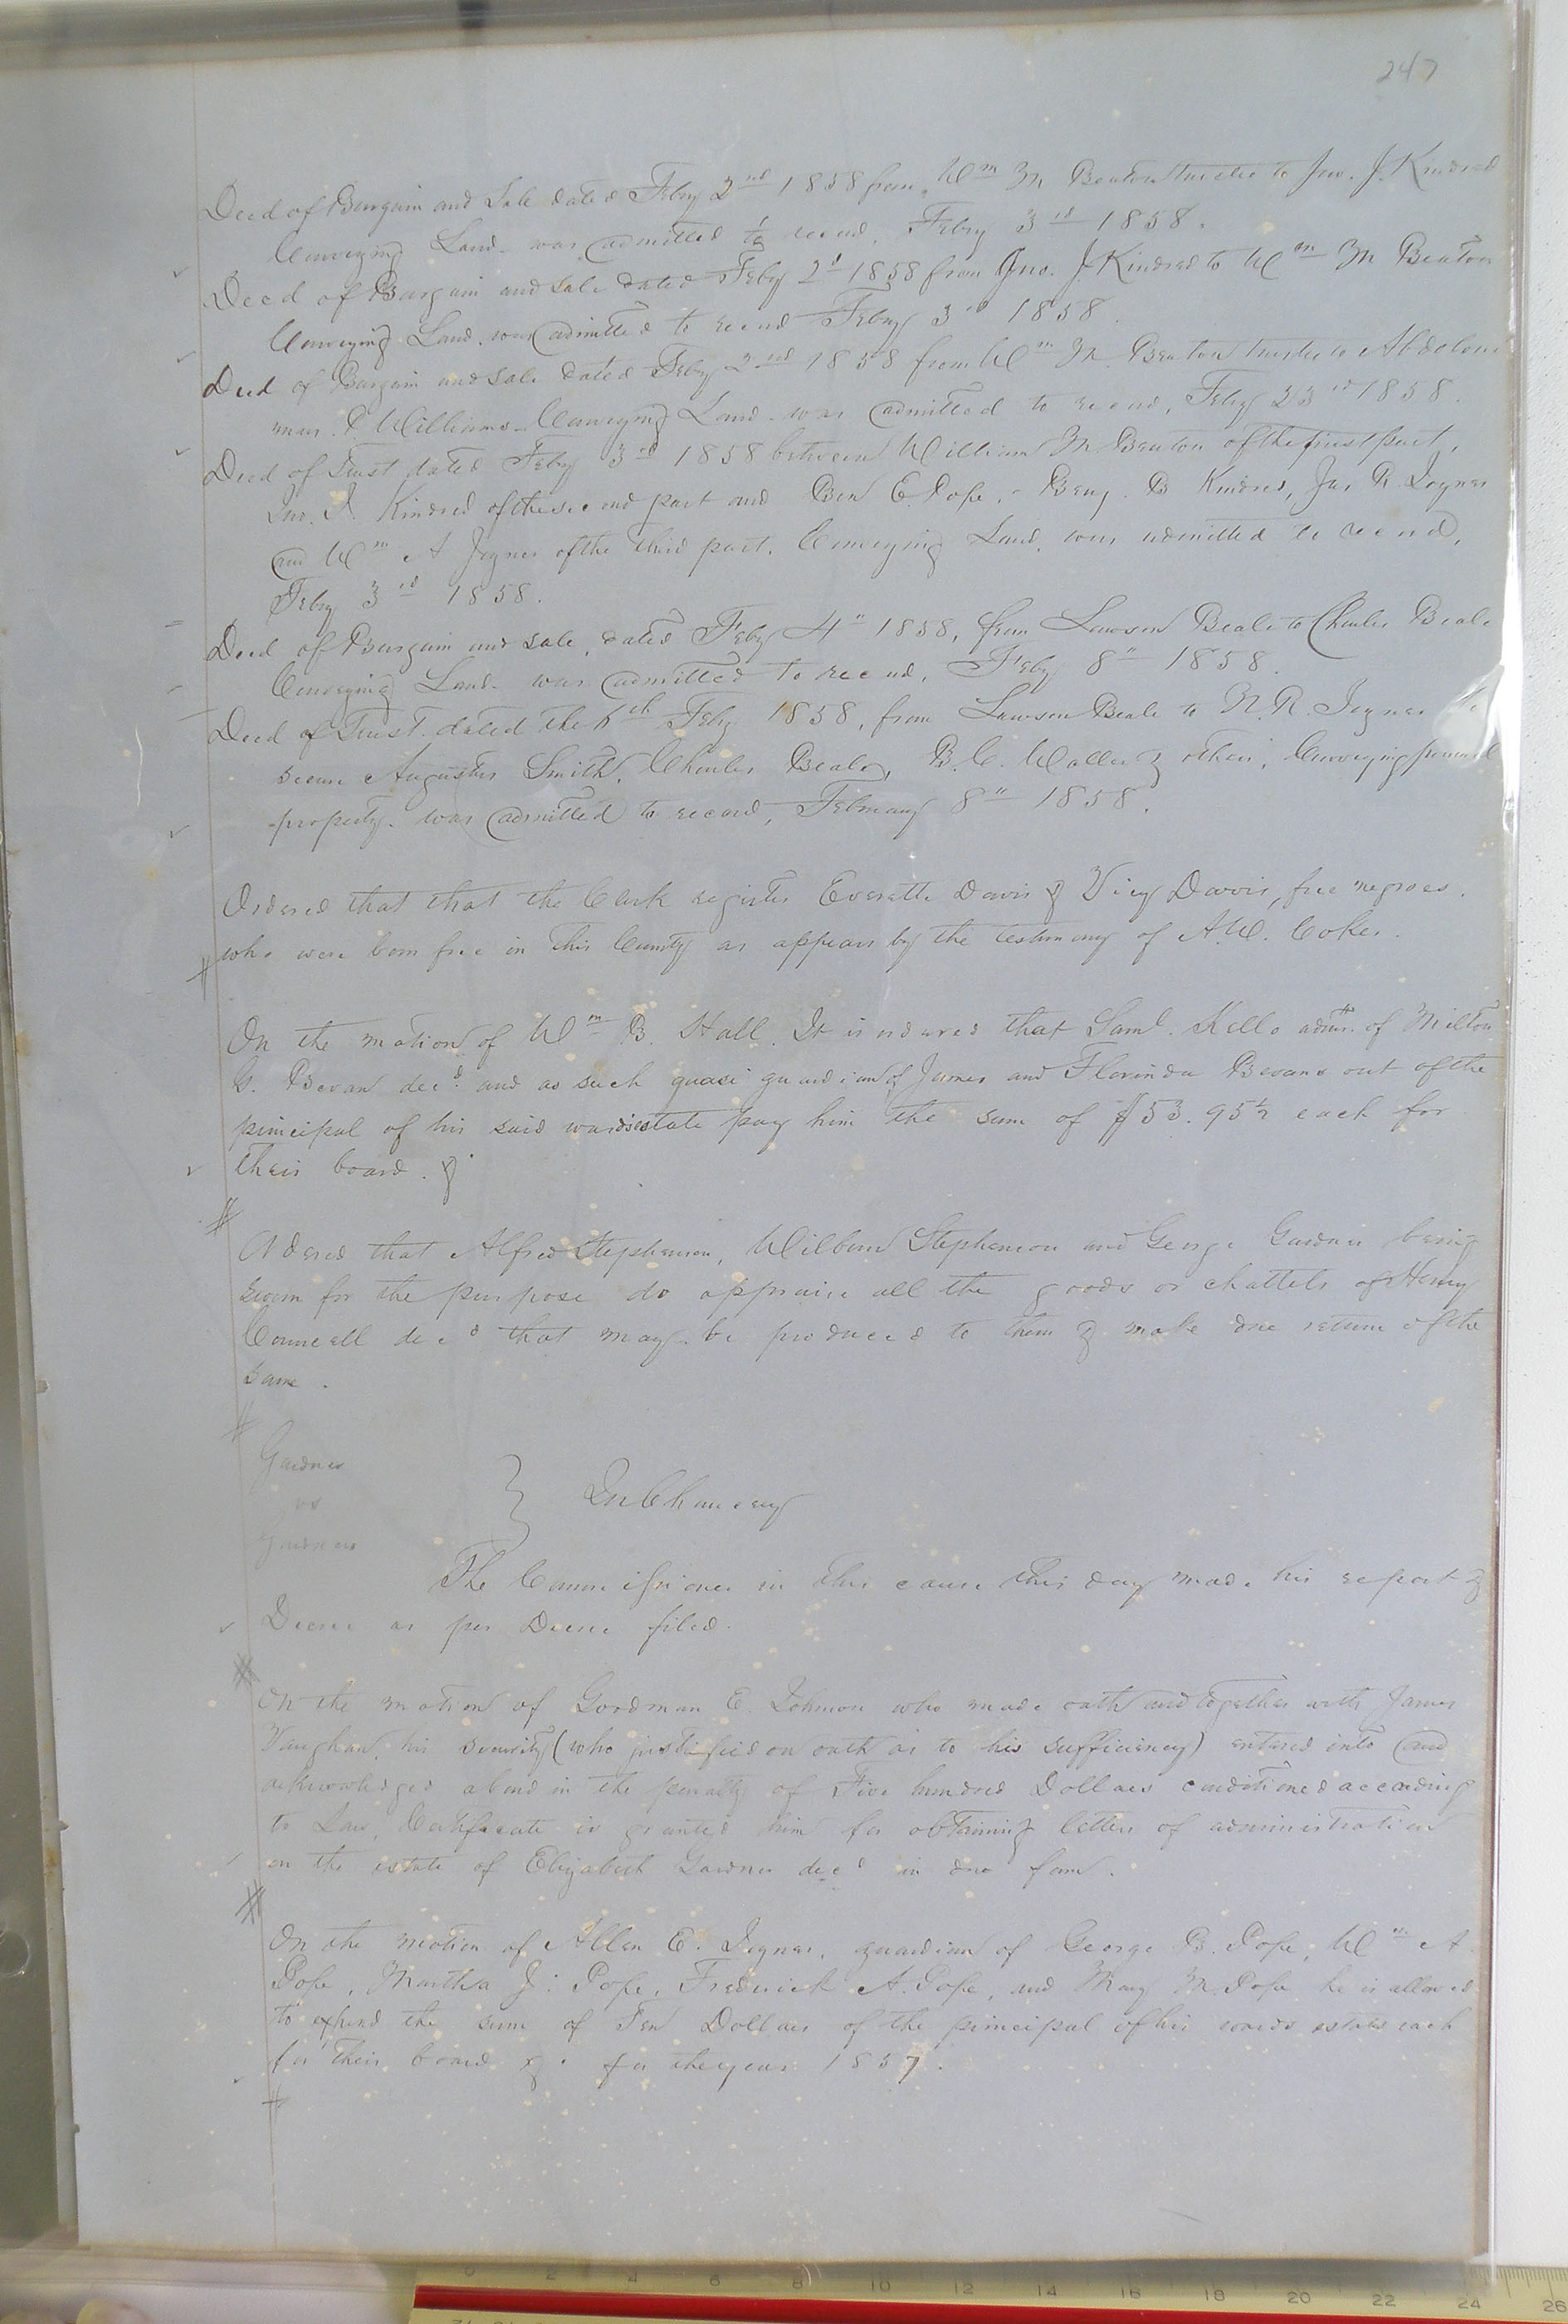 247
Deed of Bargain and Sale dated Feby 2nd 1858 from Wm M Beaton trustee to Jno. J. Kindred
Conveying Land. was admitted to record, Feby 3rd 1858.
Deed of Bargain and Sale dated Feby 2d 1858 from Jno. J. Kindred to Wm M Beaton
Conveying Land. was admitted to record Feby 3rd 1858.
Deed of Bargain and Sale dated Feby 2nd 1858 from Wm M. Beaton trustee to Abdolom
man P Williams Conveying Land. was admitted to record, Feby 23rd 1858.
Deed of Trust dated Feby 3rd 1858 between William M Beaton of the first part,
Jno. J. Kindred of the second part and Ben E. Pope, Benj. B Kindred, Jas R. Joyner
and Wm A Joyner of the third part. Conveying Land, was admitted to record,
Feby 3rd 1858.
Deed of Bargain and sale, dated Feby 4" 1858, from Lawson Beale to Charles Beale
Conveying Land. was admitted to record, Feby 8" 1858.
Deed of Trust. dated the Feby 1858, from Lawson Beale to N. R. Joyner to
secure Augustus Smith, Charles Beale, B. C. Waller & others, Conveying personal
property. was admitted to record, February 8" 1858.
Ordered that that the Clerk register Everette Davis & Vicy Davis, free negroes,
who were born free in this County as appears by the testimony of A. W. Coker.
On the motion of Wm B. Hall. It is ordered that Saml. Kello admr. of Milton
G. Bevan decd. and as such quasi guardian of James and Florinda Bevans out of the
principal of his said wards estate pay him the sum of $53.95½ each for
their board. &
Ordered that Alfred Stephenson, Wilburn Stephenson and George Gardner being
sworn for the purpose do appraise all the goods or chattels of Henry
Councill decd that may be produced to them & make due return of the
same.
Gardner
vs
Gardner
} In Chancery
The Commissioner in this cause this day made his report &
Decree as per Decree filed.
On the motion of Goodman E Johnson who made oath and together with James
Vaughan, his security (who justified on oath as to his sufficiency) entered into and
acknowledged a bond in the penalty of Five hundred Dollars conditioned according
to Law, Certificate is granted him for obtaining letters of administration
on the estate of Elizabeth Gardner decd in due form.
On the motion of Allen E. Joyner, guardian of George B. Pope, Wm A
Pope, Martha J: Pope, Frederick A. Pope, and Mary M. Pope he is allowed
to expend the sum of Ten Dollars of the principal of his wards estates each
for their board &. for the year 1857.